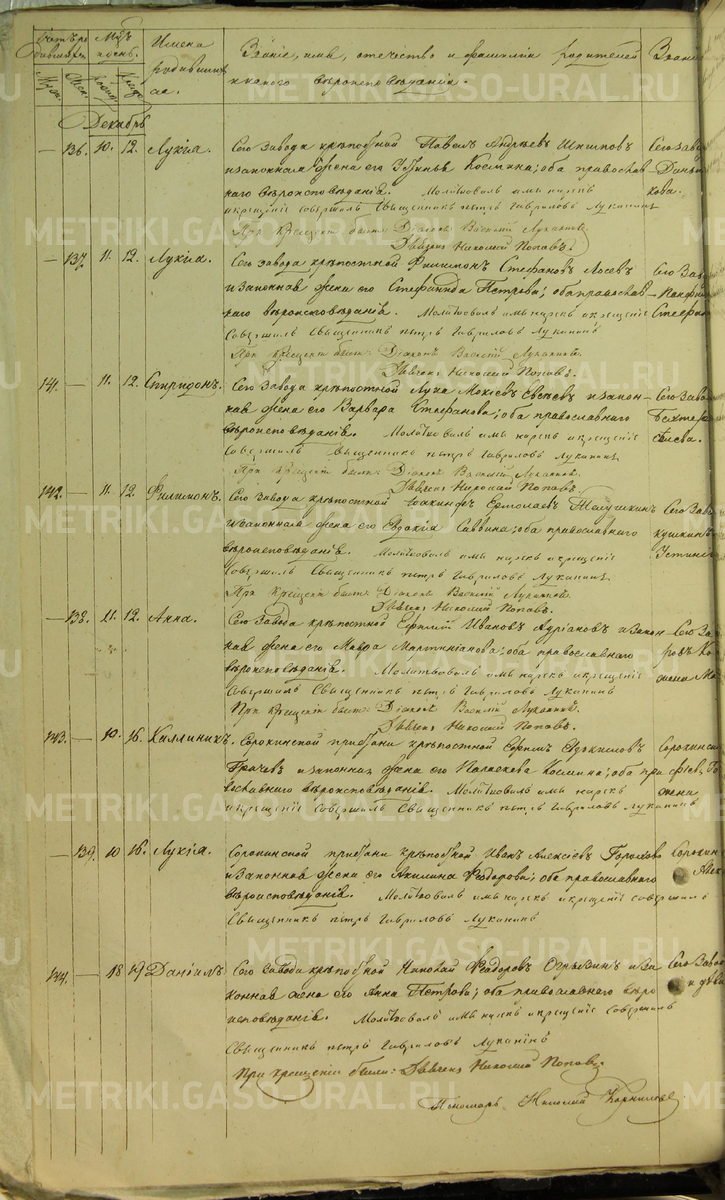 Счетъ ро
дившихся
Мѣс.
и день.
Имена
родивших
ся.
Званіе, имя, отечество и фамилія родителей
и какого вѣроисповѣданія.
Званіе
Муж.
Жен.
Декабрь
— 136. 10. 12. Лукія. Сего завода крѣпостной Павелъ Андреевъ
и законная жена его Устинья Космина; оба православ
наго вѣроисповѣданія. Молитвовалъ имя нарекъ
и крещеніе совершилъ Священникъ Петръ Гавриловъ Луканинъ
При крещеніи были: Діаконъ Василій Луканинъ.
Дьячекъ Николай Поповъ.
Сего заво
кова.
— 137. 11. 12. Лукіа. Сего завода крѣпостной Филимонъ Стефановъ Лосевъ
и законная жена его Стефанида Петрова; оба православ
наго вѣроисповѣданія. Молитвовалъ имя нарекъ и крещеніе
совершилъ Священникъ Петръ Гавриловъ Луканинъ
При крещеніи были: Діаконъ Василій Луканинъ.
Дьячекъ Николай Поповъ.
Сего Заво
Стефан
141. — 11. 12. Спиридонъ. Сего Завода крѣпостной Лука Мокіевъ и закон
ная жена его Варвара Стефанова; оба православнаго
вѣроисповѣданія. Молитвовалъ имя нарекъ и крещеніе
совершилъ Священникъ Петръ Гавриловъ Луканинъ
При крещеніи были: Діаконъ Василій Луканинъ.
Дьячекъ Николай Поповъ.
Сего Заво
142. — 11. 12. Филимонъ. Сего Завода крѣпостной Іоакинфъ Ермолаевъ
и законная жена его Евдокія Саввина; оба православнаго
вѣроисповѣданія. Молитвовалъ имя нарекъ и крещеніе
совершилъ Священникъ Петръ Гавриловъ Луканинъ
При крещеніи были: Діаконъ Василій Луканинъ.
Дьячекъ Николай Поповъ.
Сего Заво
кушкинъ
Устинь
— 138. 11. 12. Анна. Сего завода крѣпостной Ивановъ Адріановъ и закон
ная жена его Мавра Мартиніанова; оба православнаго
вѣроисповѣданія. Молитвовалъ имя нарекъ и крещеніе
совершилъ Священникъ Петръ Гавриловъ Луканинъ
При крещеніи были: Діаконъ Василій Луканинъ.
Дьячекъ Николай Поповъ.
Сего За
жена
143. — 10. 16. Каллиникъ. Сорокинской пристани крѣпостной Евдокимовъ
Грачевъ и законная жена его Космина; оба пра
вославнаго вѣроисповѣданія. Молитвовалъ имя нарекъ
и крещеніе совершилъ Священникъ Петръ Гавриловъ Луканинъ
Сорокинск
жена
— 139. 10 16. Лукія. Сорокинской пристани крѣпостной Иванъ Алексіевъ
и законная жена его Акилина Ѳеодорова; оба православнаго
вѣроисповѣданія. Молитвовалъ имя нарекъ и крещеніе совершилъ
Священникъ Петръ Гавриловъ Луканинъ
Сорокин
Алек
144. — 18 19 Даніилъ Сего Завода крѣпостной Николай Ѳеодоровъ и за
конная жена его Анна Петрова; оба православнаго вѣро
исповѣданія. Молитвовалъ имя нарекъ и крещеніе совершилъ
Священникъ Петръ Гавриловъ Луканинъ
При крещеніи были: Дьячекъ Николай Поповъ.
Пономарь Николай Корниловъ.
Сего Завод
и дѣви
METRIKI.GASO-URAL.RU